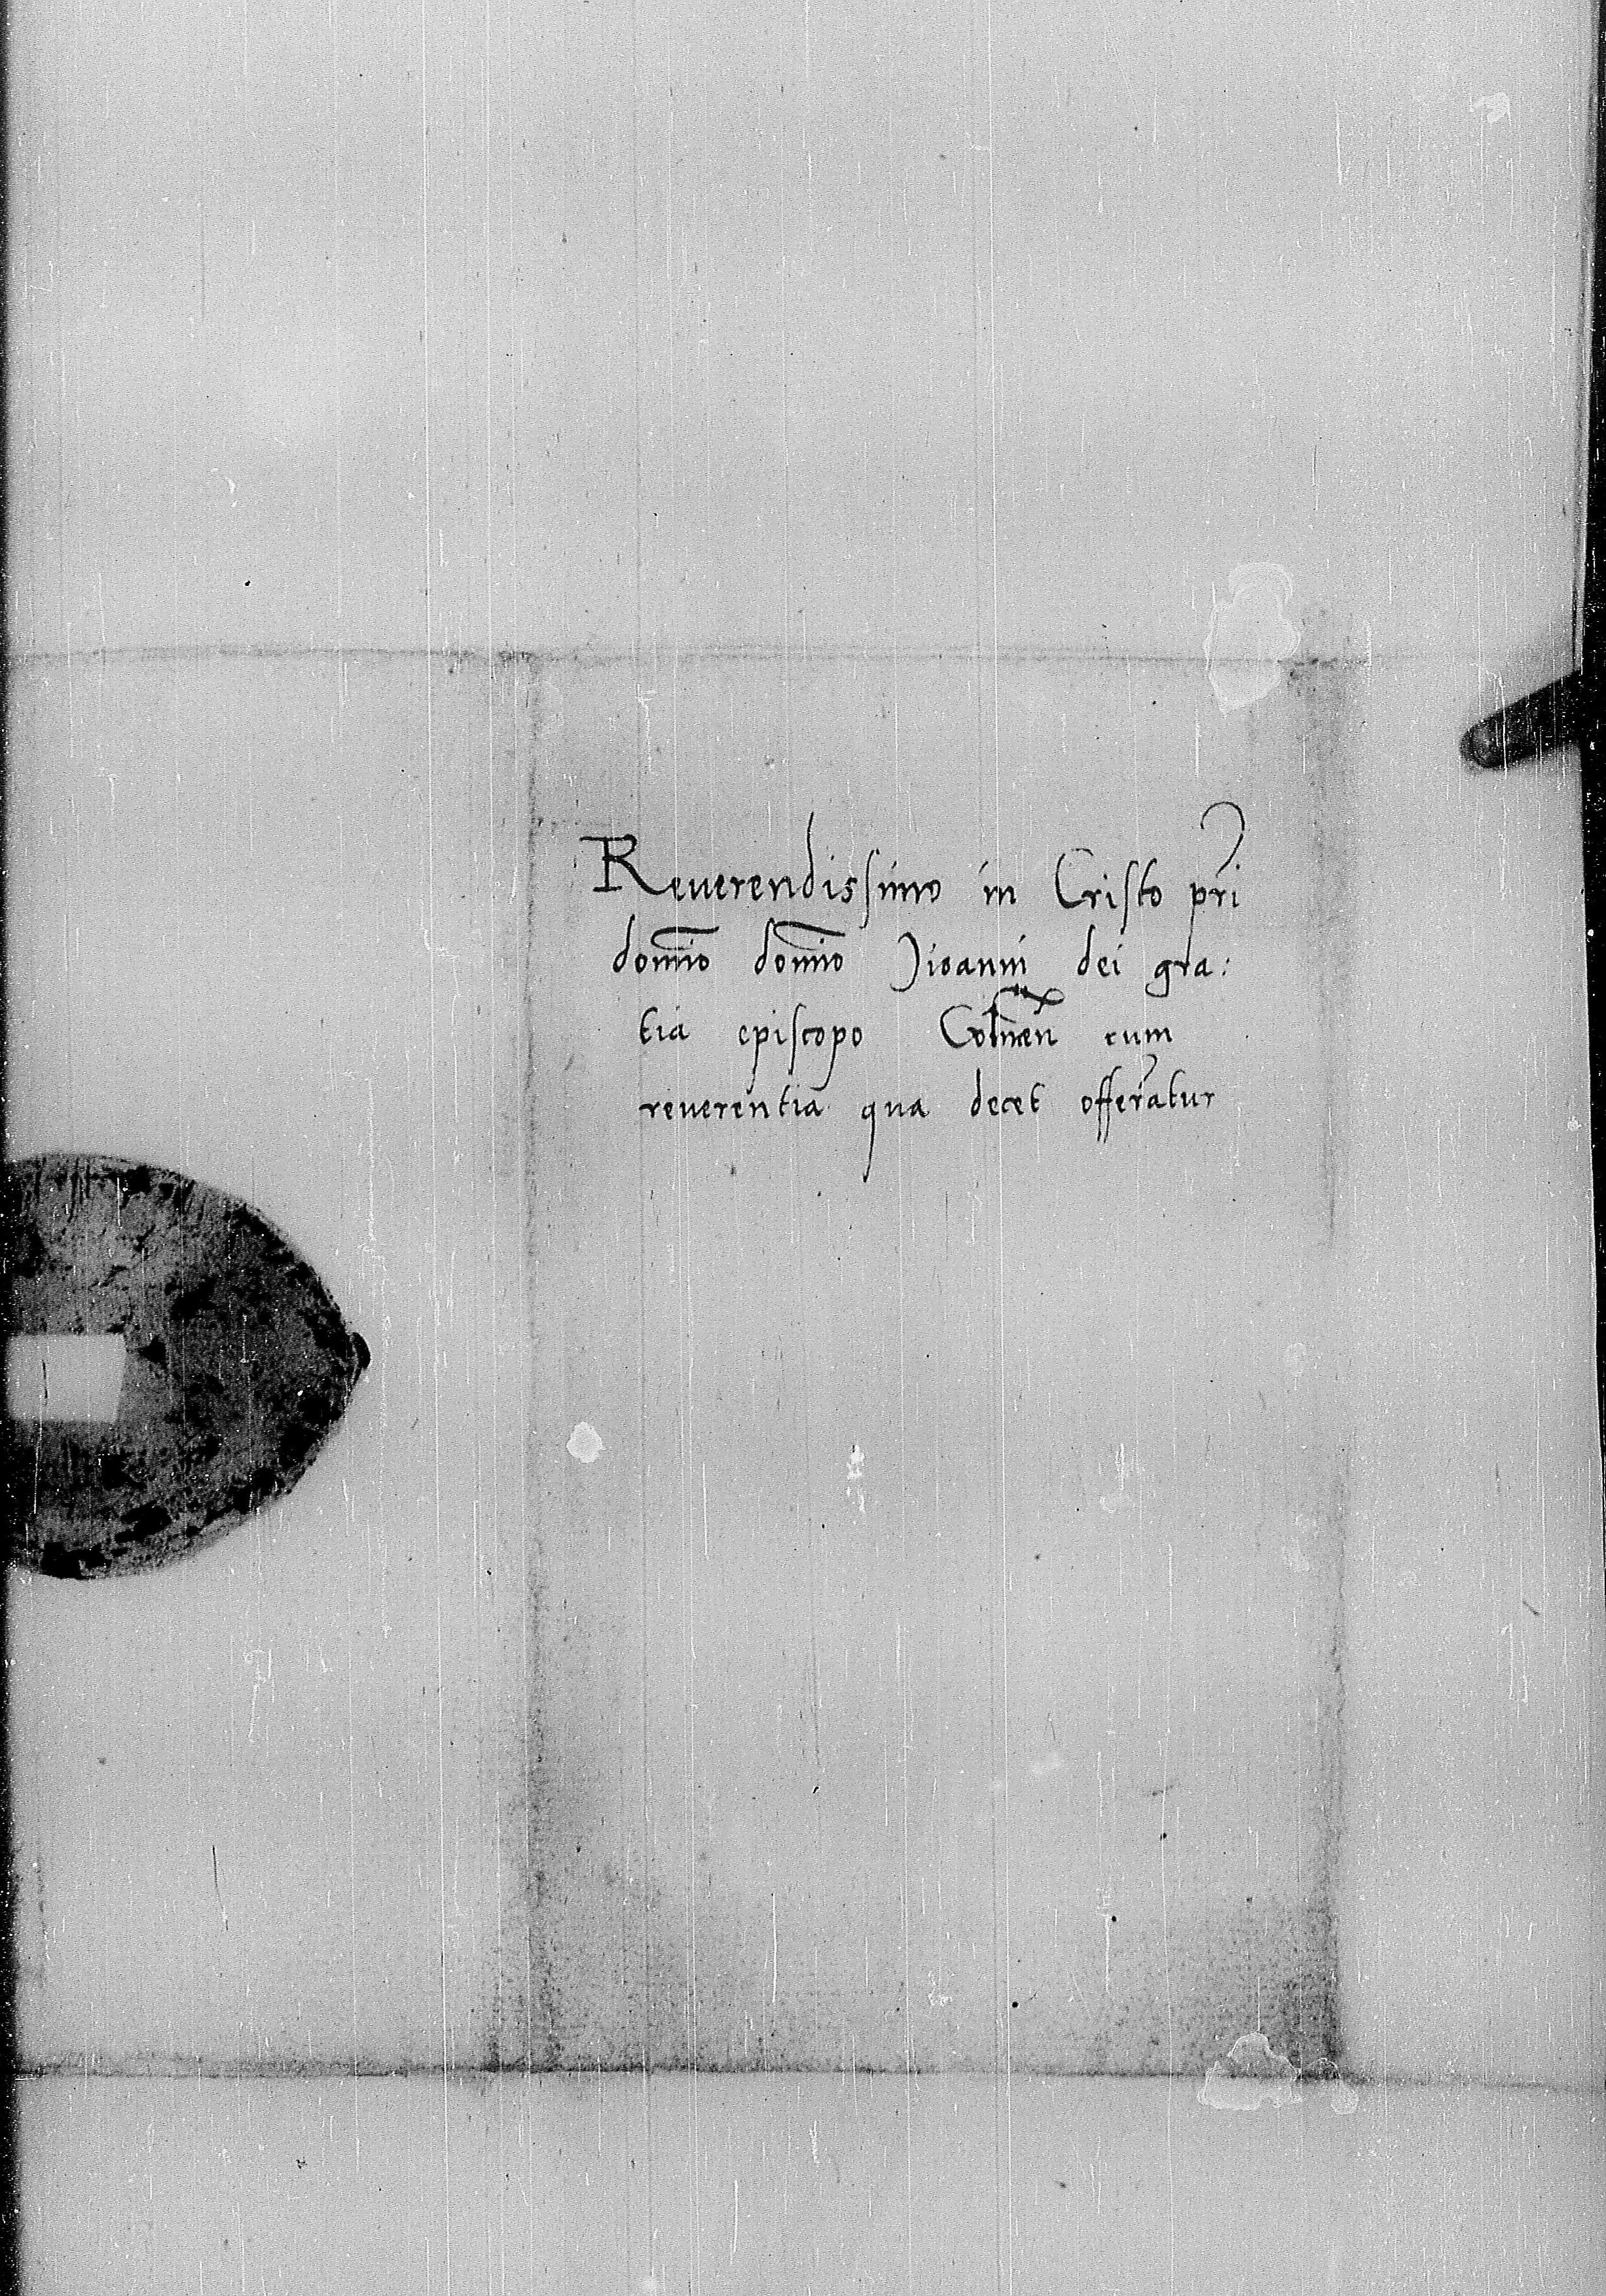 Reuerendissimo in Cristo pri
domino domino Jioanni dei gra:
tia episcopo Colmen cum
reuerentia qua decet offeratur